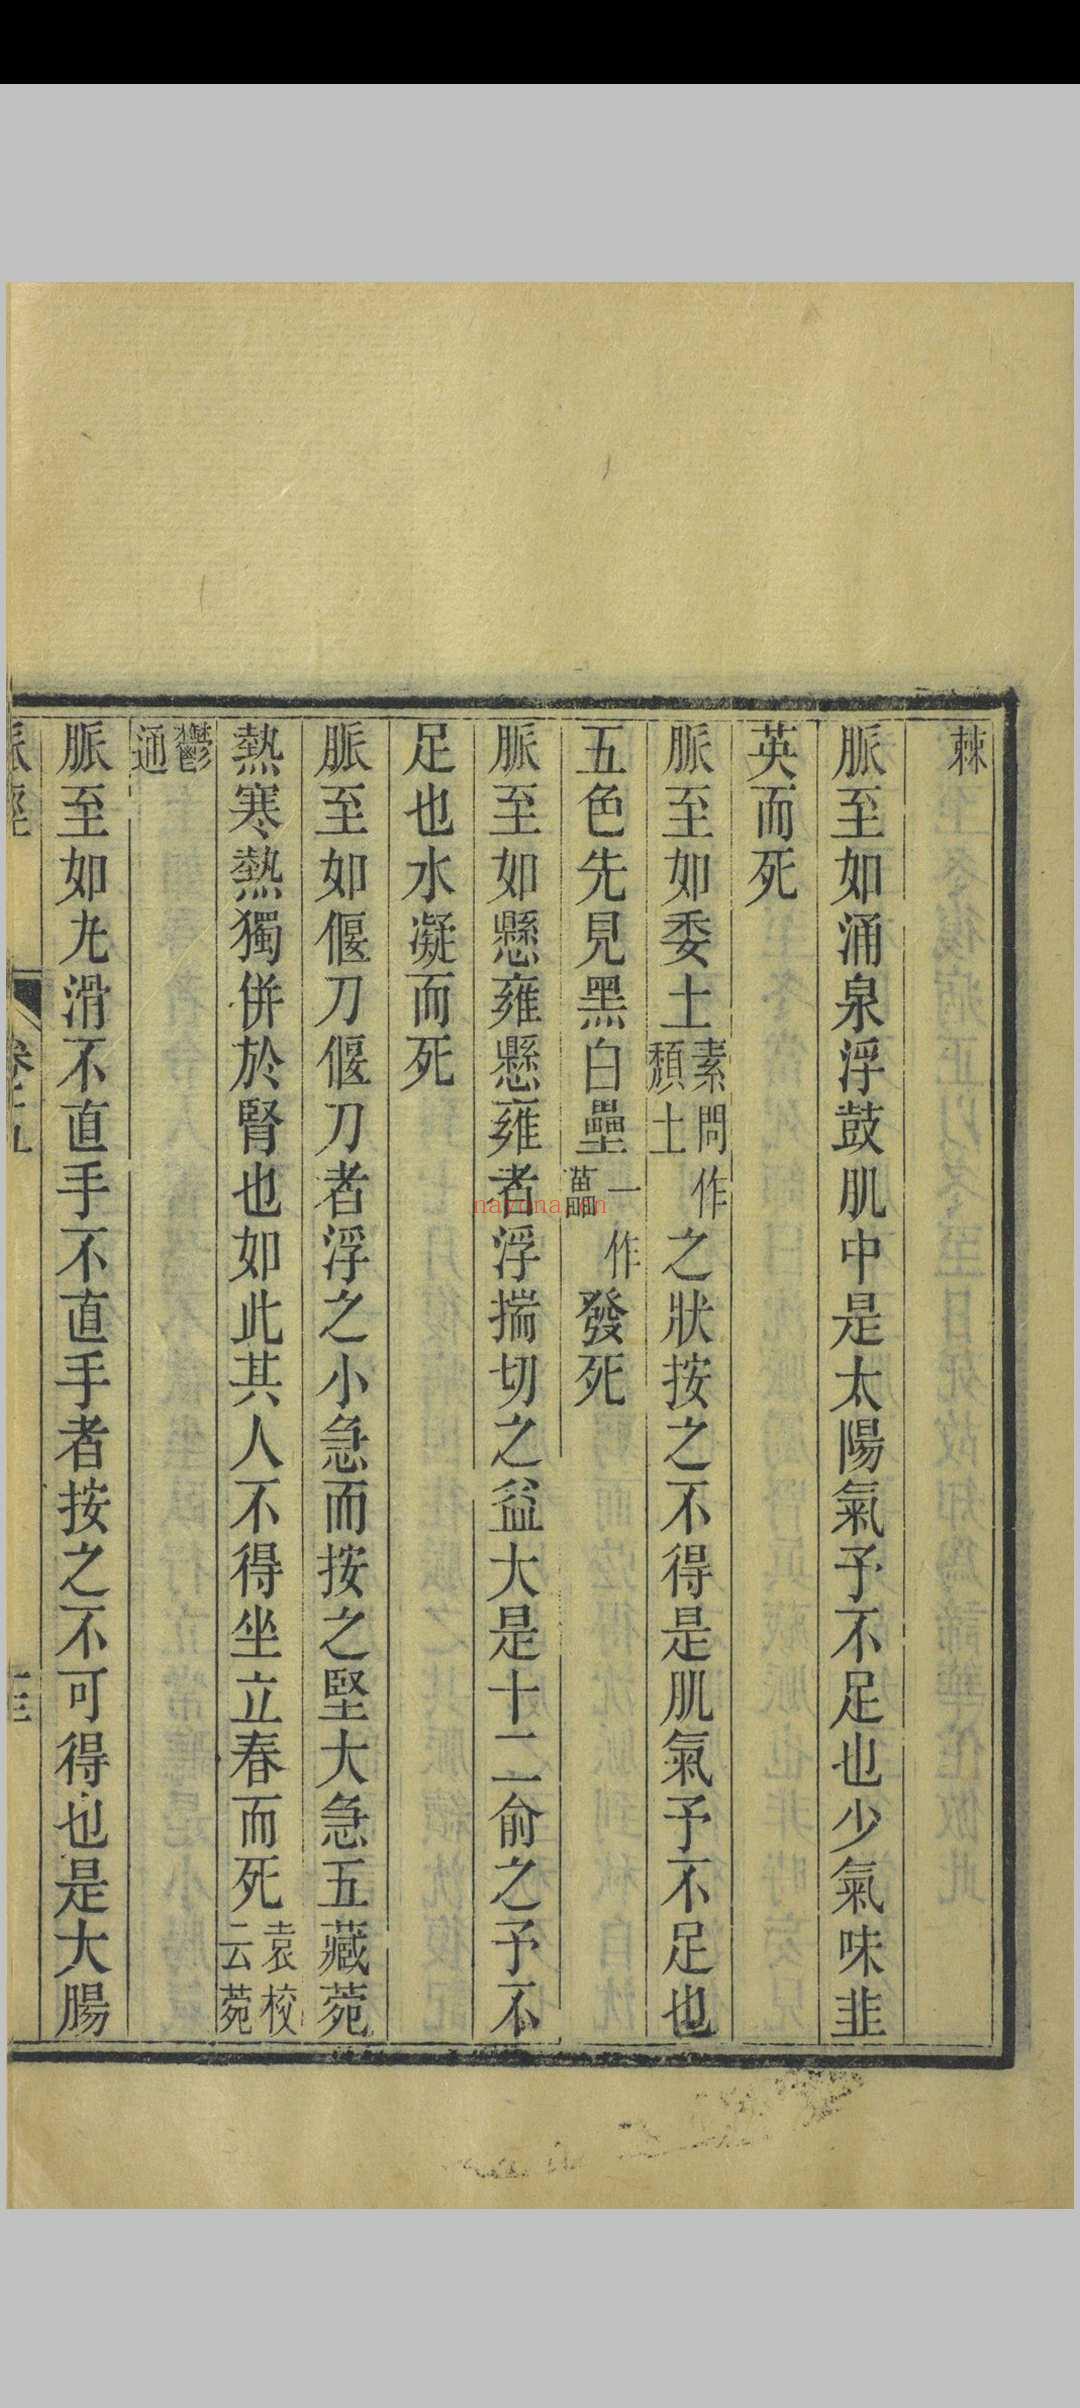 棘
脈至如涌泉浮鼓肌中是太陽氣予不足也少氣味韭
英而死
脈至如委土素問作頹土之狀按之不得是肌氣予不足也
五色先見黑白壘一作藟發死
脈至如懸雍懸雍者浮揣切之益大是十二俞之予不
足也水凝而死
脈至如偃刀偃刀者浮之小急而按之堅大急五藏菀
熱寒熱獨併於腎也如此其人不得坐立春而死袁校云菀
鬱通
脈至如丸滑不直手不直手者按之不可得也是大腸
nayona.cn